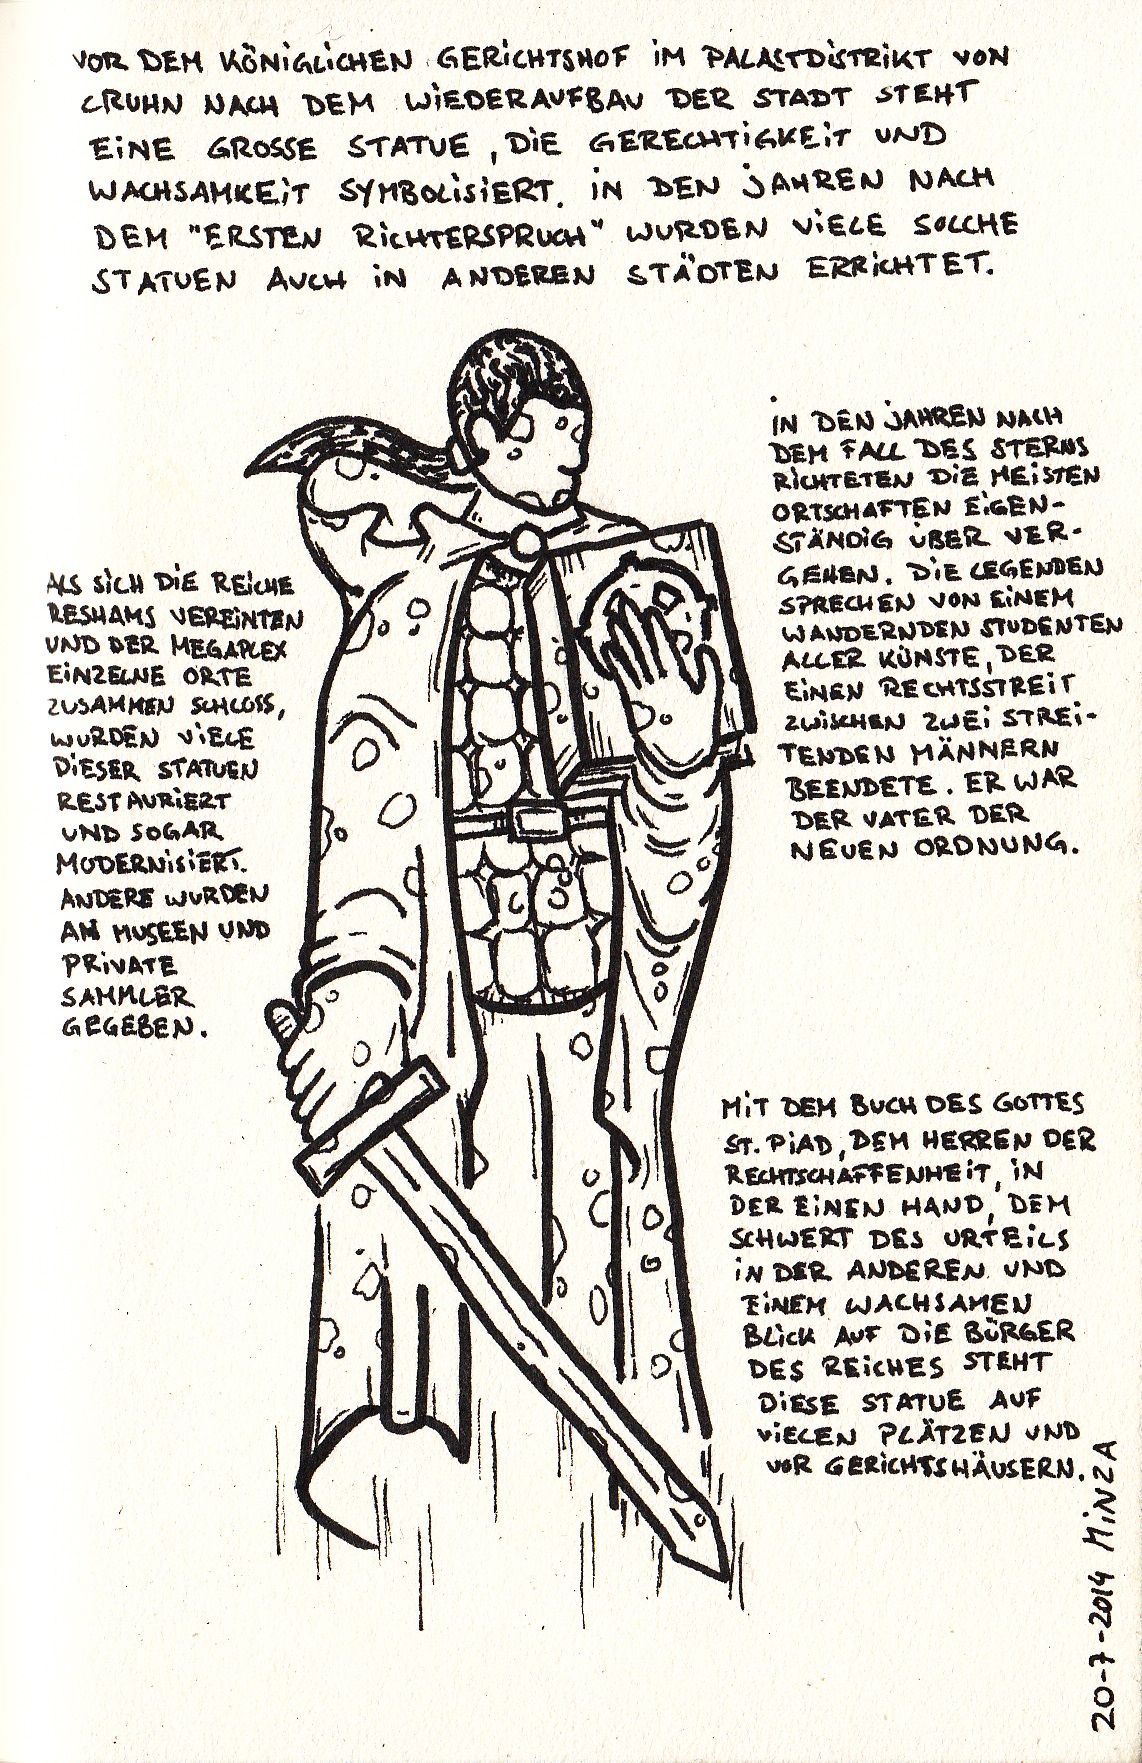 VOR DEM KÖNIGLICHEN GERICHTSHOF IM PALASTDISTRIKT VON
CRUHN NACH DEM WIEDERAUFBAU DER STADT STEHT
EINE GROSSE STATUE, DIE GERECHTIGKEIT UND
WACHSAMKEIT SYMBOLISIERT. IN DEN JAHREN NACH
DEM "ERSTEN RICHTERSPRUCH" WURDEN VIELE SOLCHE
STATUEN AUCH IN ANDEREN STÄDTEN ERRICHTET.
IN DEN JAHREN NACH
DEM FALL DES STERNS
RICHTETEN DIE MEISTEN
ORTSCHAFTEN EIGEN-
STÄNDIG ÜBER VER-
GEHEN. DIE LEGENDEN
SPRECHEN VON EINEM
WANDERNDEN STUDENTEN
ALLER KÜNSTE, DER
EINEN RECHTSSTREIT
ZWISCHEN ZWEI STREI-
TENDEN MÄNNERN
BEENDETE. ER WAR
DER VATER DER
NEUEN ORDNUNG.
ALS SICH DIE REICHE
RESHAMS VEREINTEN
UND DER MEGAPLEX
EINZELNE ORTE
ZUSAMMEN SCHLOSS,
WURDEN VIELE
DIESER STATUEN
RESTAURIERT
UND SOGAR
MODERNISIERT.
ANDERE WURDEN
AN MUSEEN UND
PRIVATE
SAMMLER
GEGEBEN.
MIT DEM BUCH DES GOTTES
ST. PIAD, DEM HERREN DER
RECHTSCHAFFENHEIT, IN
DER EINEN HAND, DEM
SCHWERT DES URTEILS
IN DER ANDEREN UND
EINEM WACHSAMEN
BLICK AUF DIE BÜRGER
DES REICHES STEHT
DIESE STATUE AUF
VIELEN PLÄTZEN UND
VOR GERICHTSHÄUSERN.
20-7-2014 MINZA